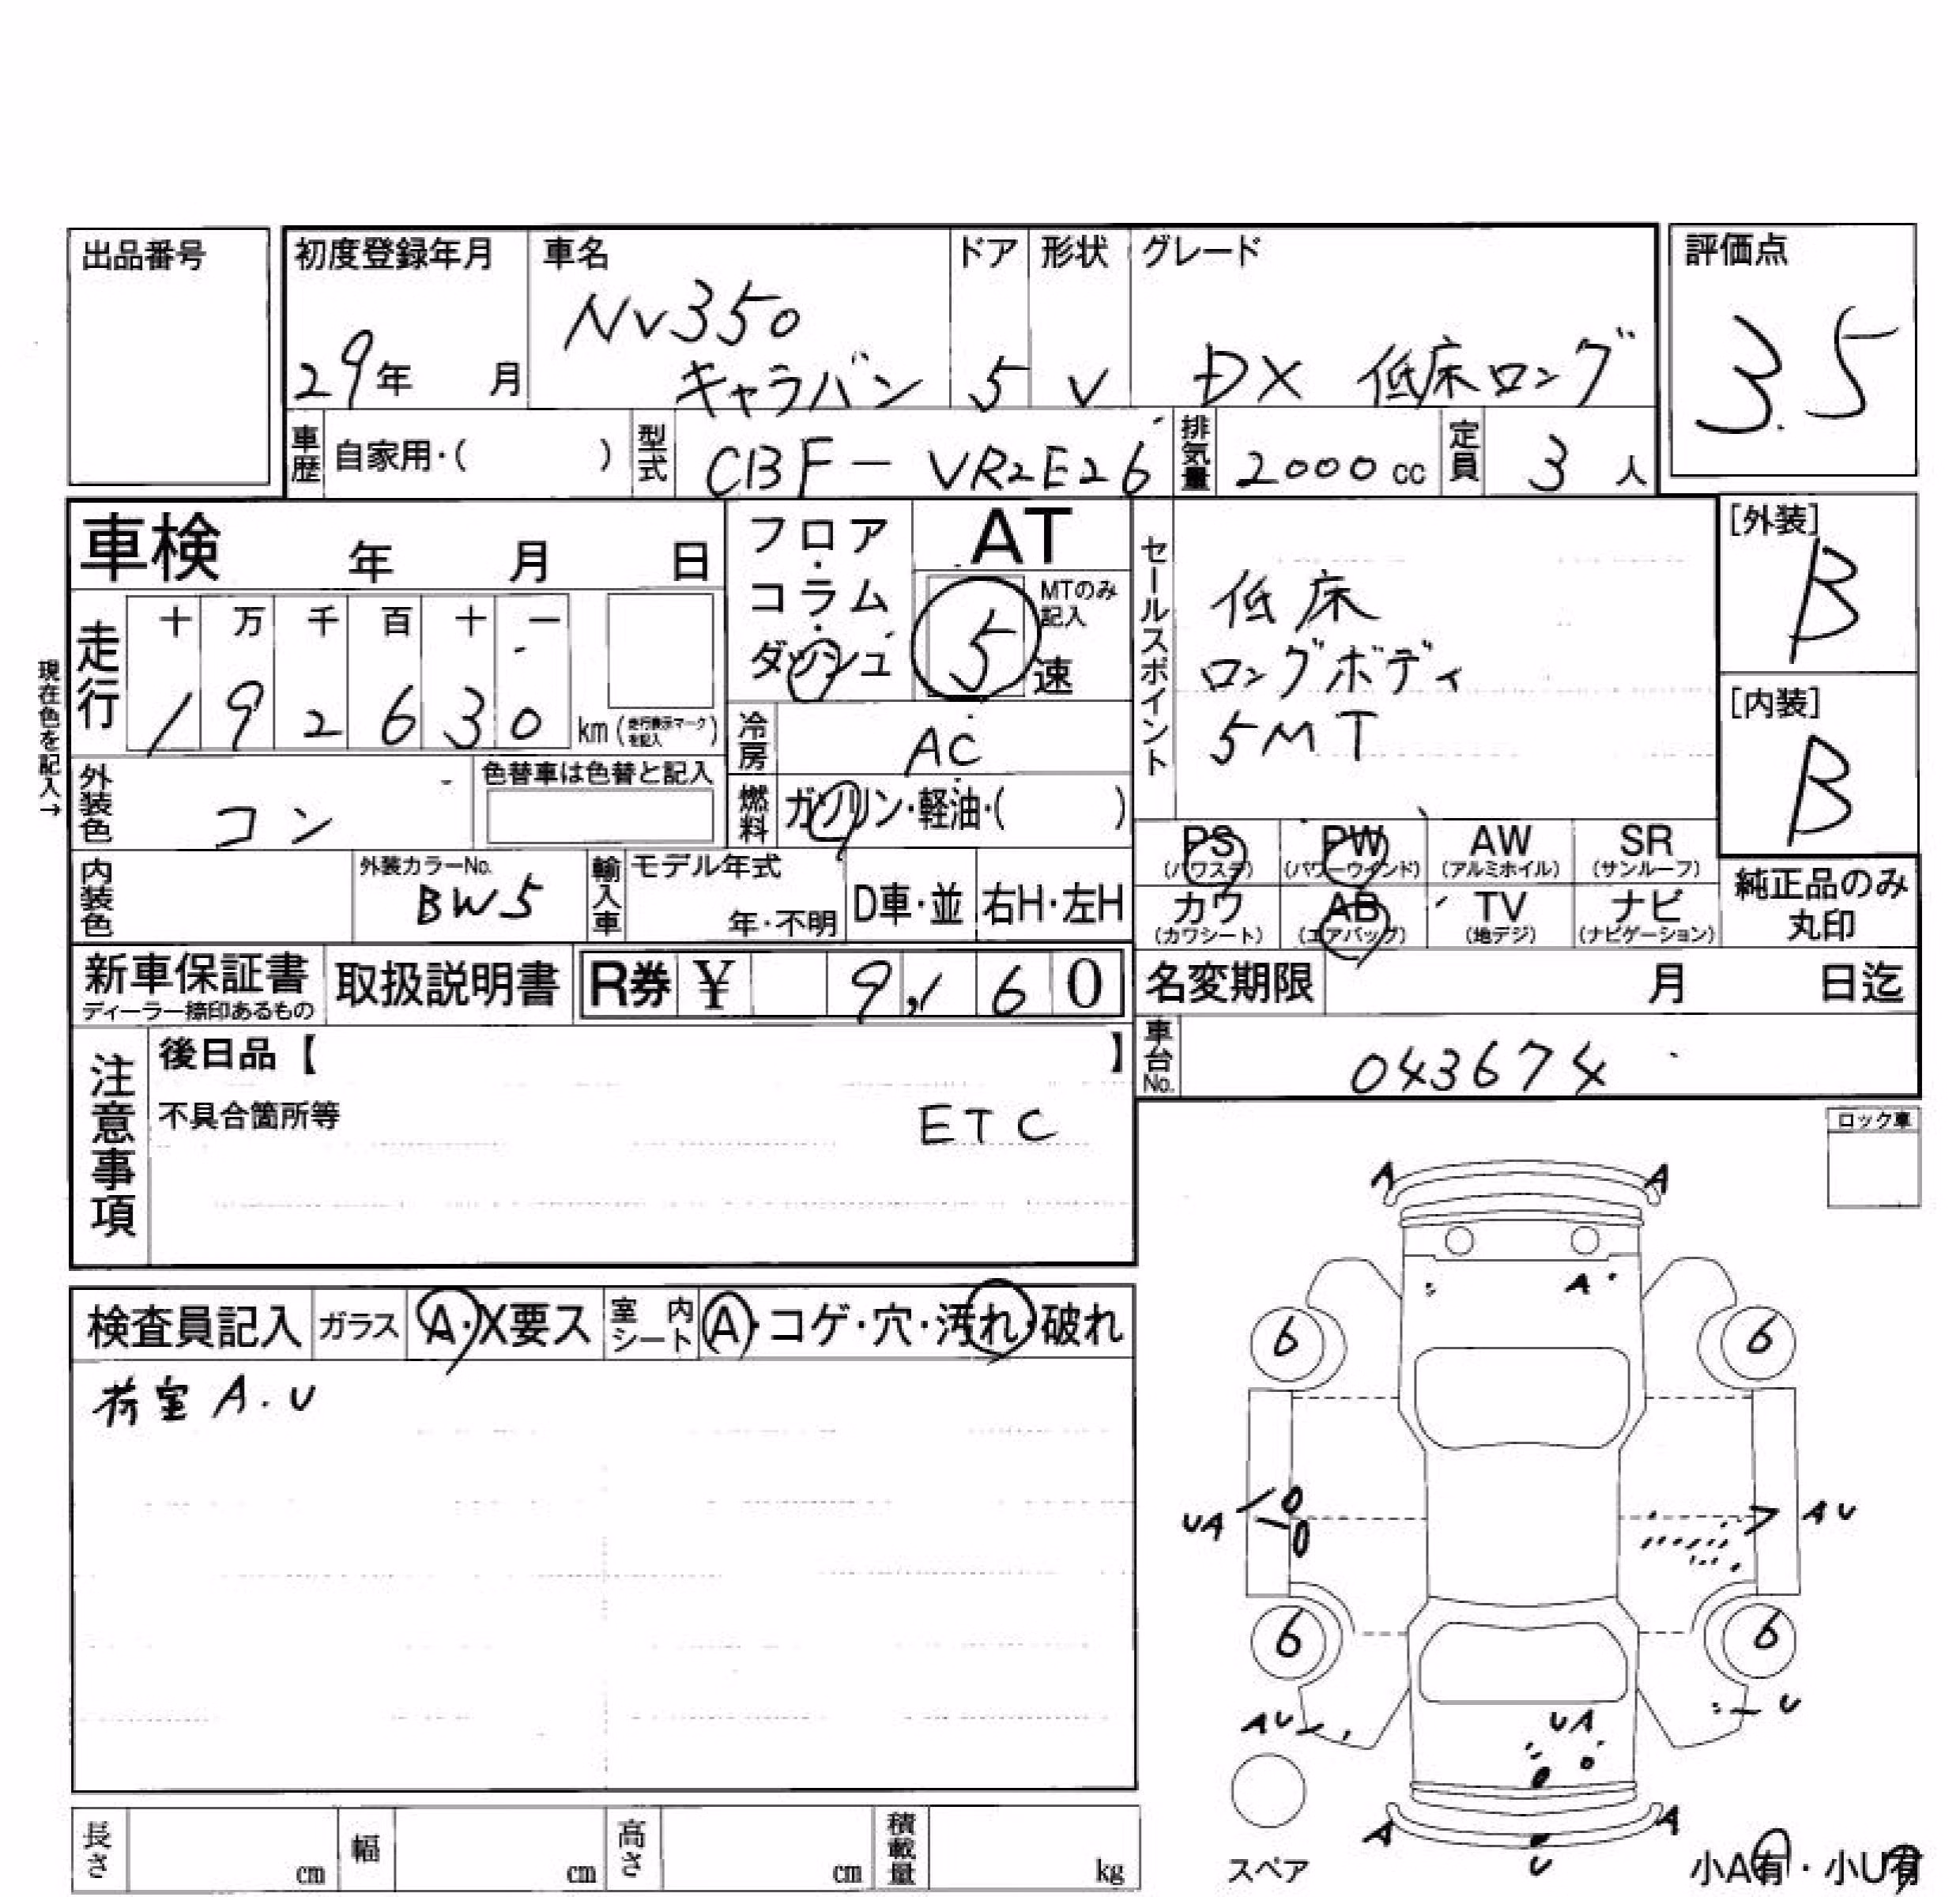 出品番号
初度登録年月 車名 ドア 形状 グレード
評価点
29年 月
NV350
キャラバン
5
V
DX 低床ロング
3.5
車歴 自家用・( )
型式 CBF-VR2E26
排気量 2000 cc
定員 3 人
車検 年 月 日
走行 十 万 千 百 十 一
1 9 2 6 3 0 km(走行表示マークを記入)
現在色を記入→
外装色 コン
色替車は色替と記入
内装色
外装カラーNo.
BW5
フロア・コラム・ダッシュ
AT
5 速
MTのみ記入
冷房 AC
燃料 ガソリン・軽油・( )
輸入車 モデル年式
年・不明
D車・並 右H・左H
セールスポイント
低床
ロングボディ
5MT
[外装]
B
[内装]
B
PS PW AW SR
(パワステ) (パワーウインド) (アルミホイル) (サンルーフ)
カワ AB TV ナビ
(カワシート) (エアバッグ) (地デジ) (ナビゲーション)
純正品のみ
丸印
新車保証書
ディーラー捺印あるもの
取扱説明書
R券 ¥ 9,160
名変期限 月 日迄
車台No. 043674
注意事項
後日品【 】
不具合箇所等
ETC
ロック車
検査員記入 ガラス A・X要ス 室内シート A・コゲ・穴・汚れ・破れ
荷室 A.U
A A
A
6 6
UA AU
6 6
AU U
UA
A A
U
スペア
小A有・小U有
長さ cm 幅 cm 高さ cm 積載量 kg